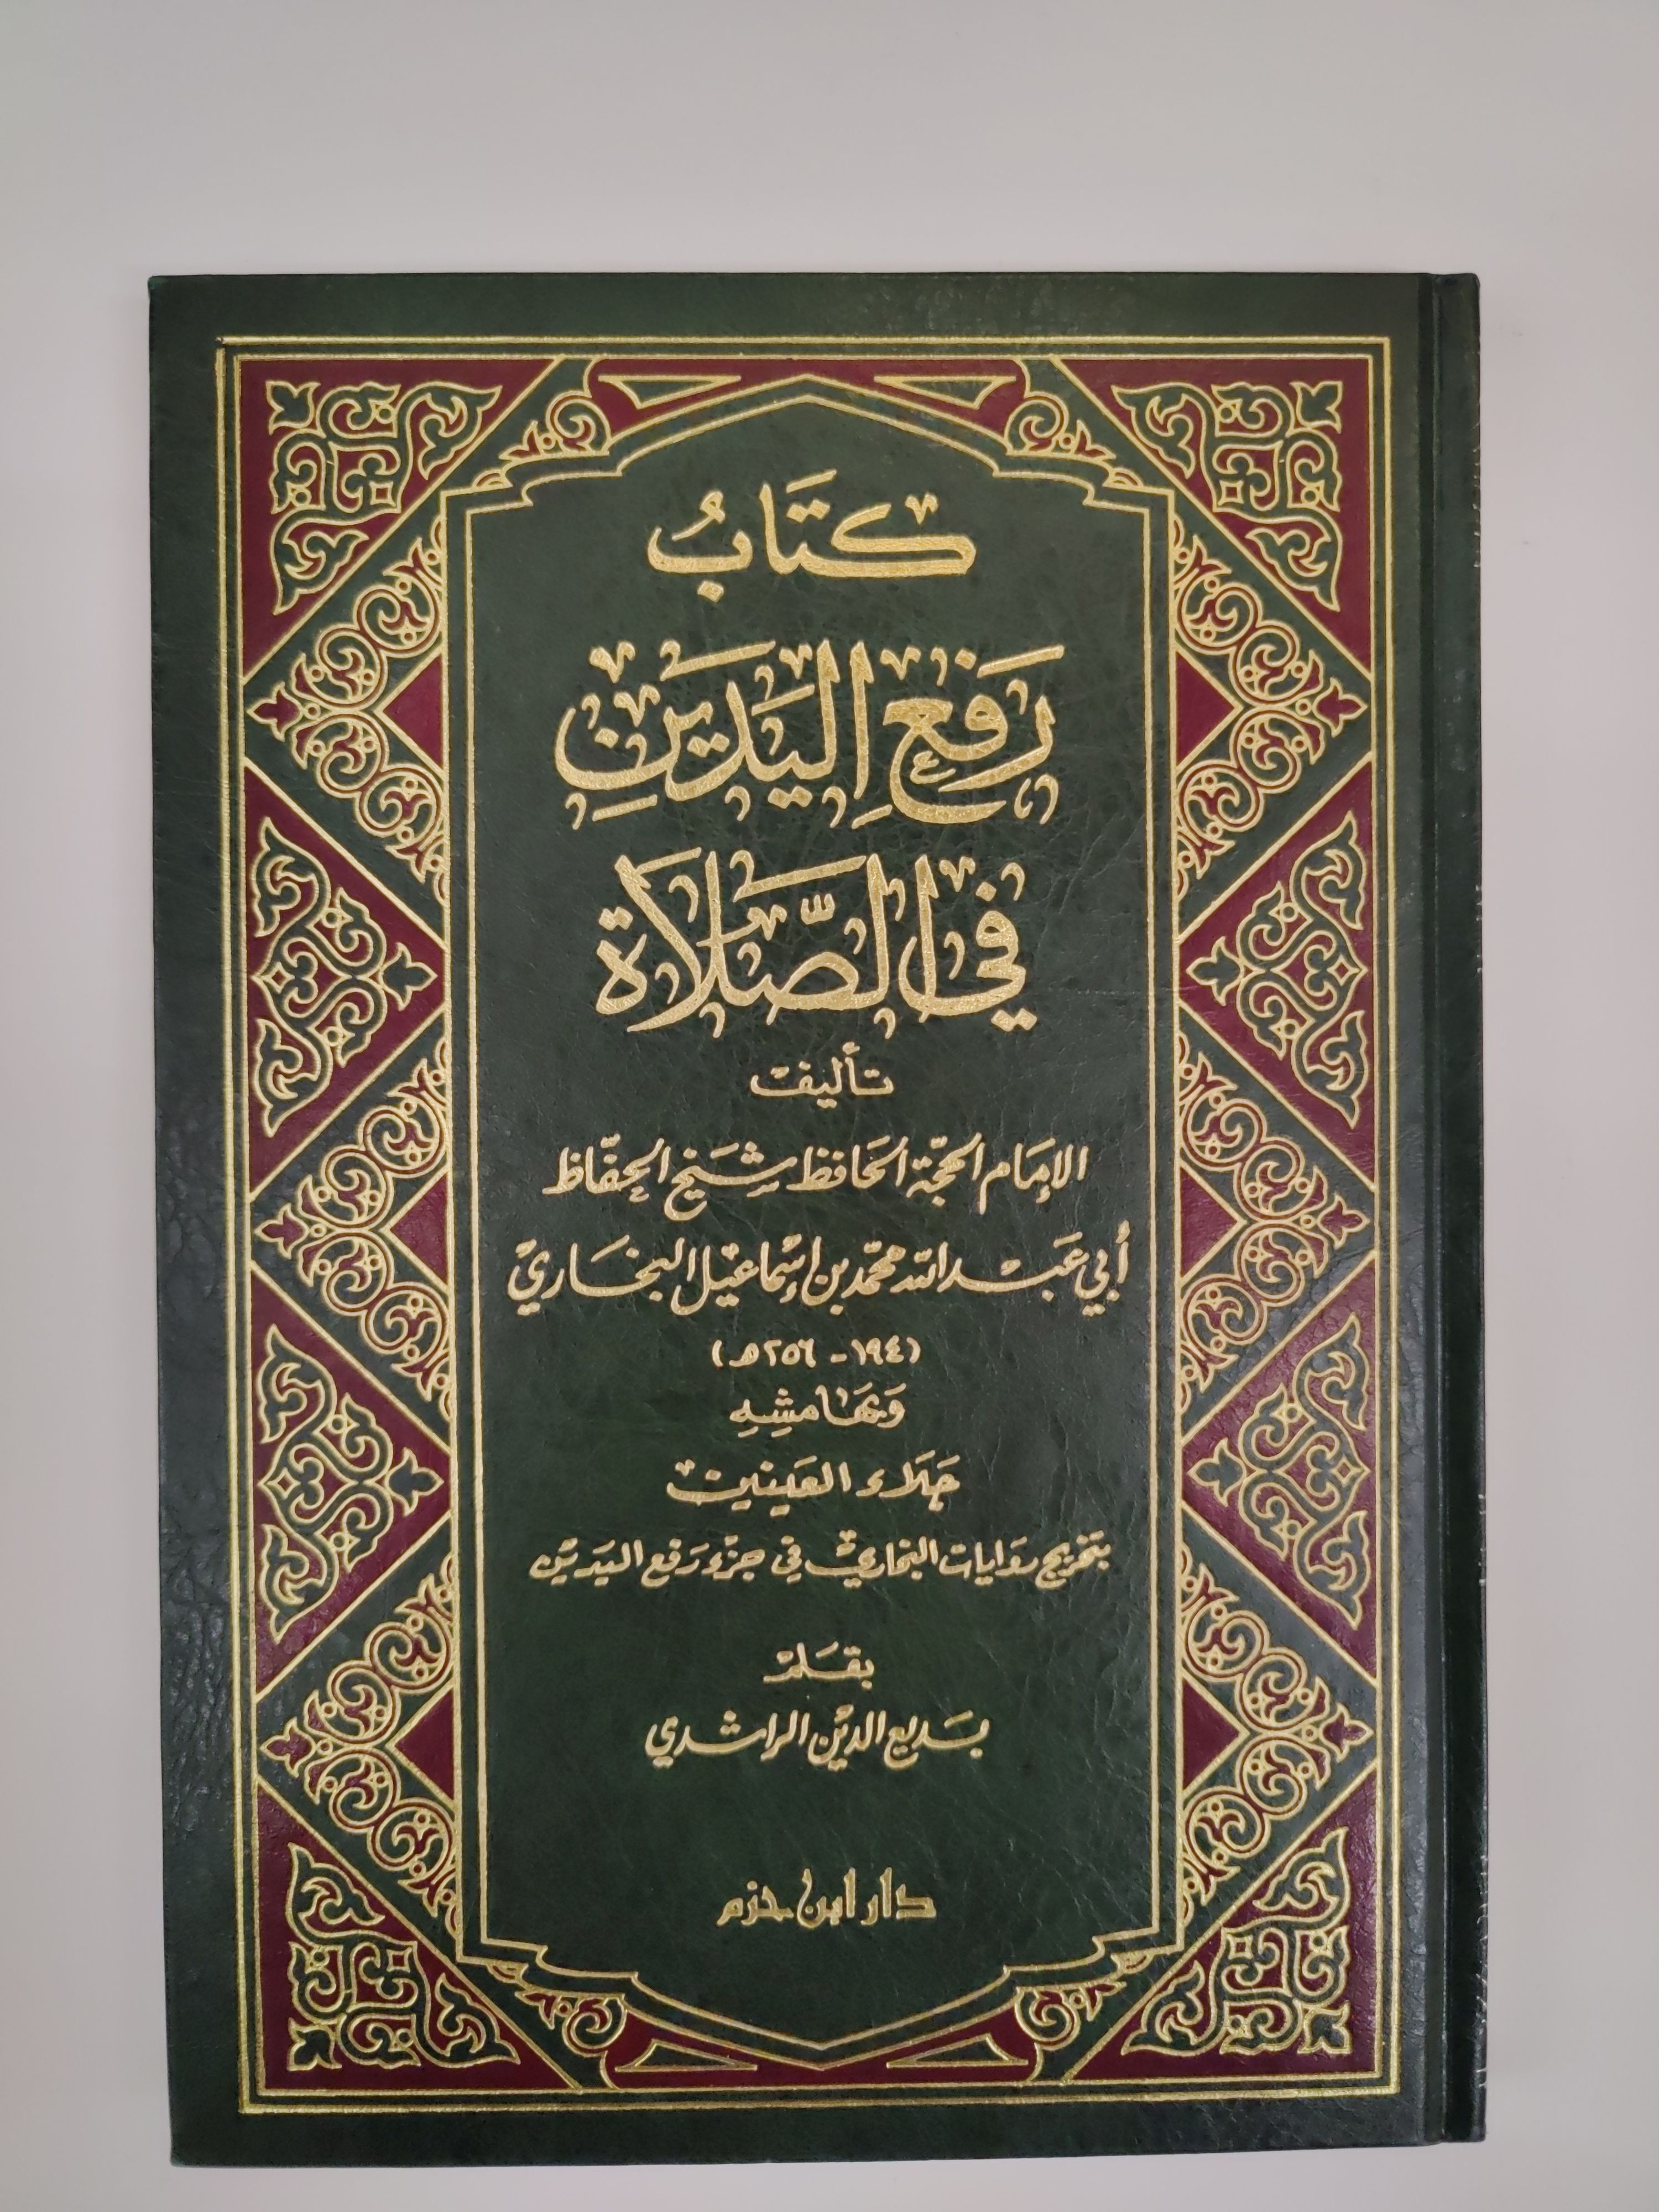 كتَابُ
رَفعِ اليَدَينِ
في الصَّلَاة
تأليف
الإمَام الحجّة الحَافظ شيَخ الحفّاظ
أبي عَبد الله محمّد بن إسْماعيْل البخَاري
(١٩٤ - ٢٥٦ هـ)
وَبهَامشِهِ
جَلَاء العَينين
بتخريج روَايات البخاري في جزء رَفع اليَدين
بقَلم
بَديع الديْن الراشدي
دار ابن حزم